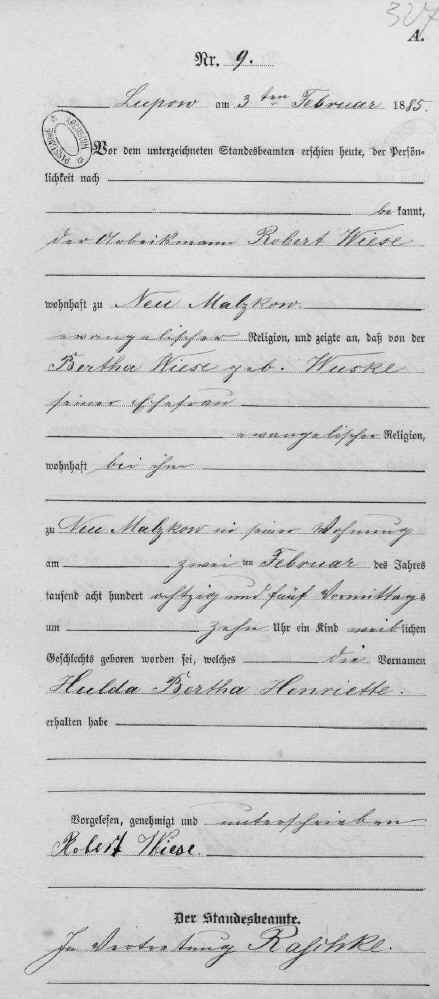 327
A.
Nr. 9.
Lupow am 3 ten Februar 1885.
Vor dem unterzeichneten Standesbeamten erschien heute, der Persön-
lichkeit nach
bekannt,
der Arbeitsmann Robert Wiese
wohnhaft zu Neu Malzkow
evangelischer Religion, und zeigte an, daß von der
Bertha Wiese geb. Wuske
seiner Ehefrau
evangelischer Religion,
wohnhaft bei ihm
zu Neu Malzkow in seiner Wohnung
am zwei ten Februar des Jahres
tausend acht hundert achtzig und fünf Vormittags
um zehn Uhr ein Kind weiblichen
Geschlechts geboren worden sei, welches die Vornamen
Hulda Bertha Henriette.
erhalten habe
Vorgelesen, genehmigt und unterschrieben
Robert Wiese.
Der Standesbeamte.
In Vertretung Raschke.